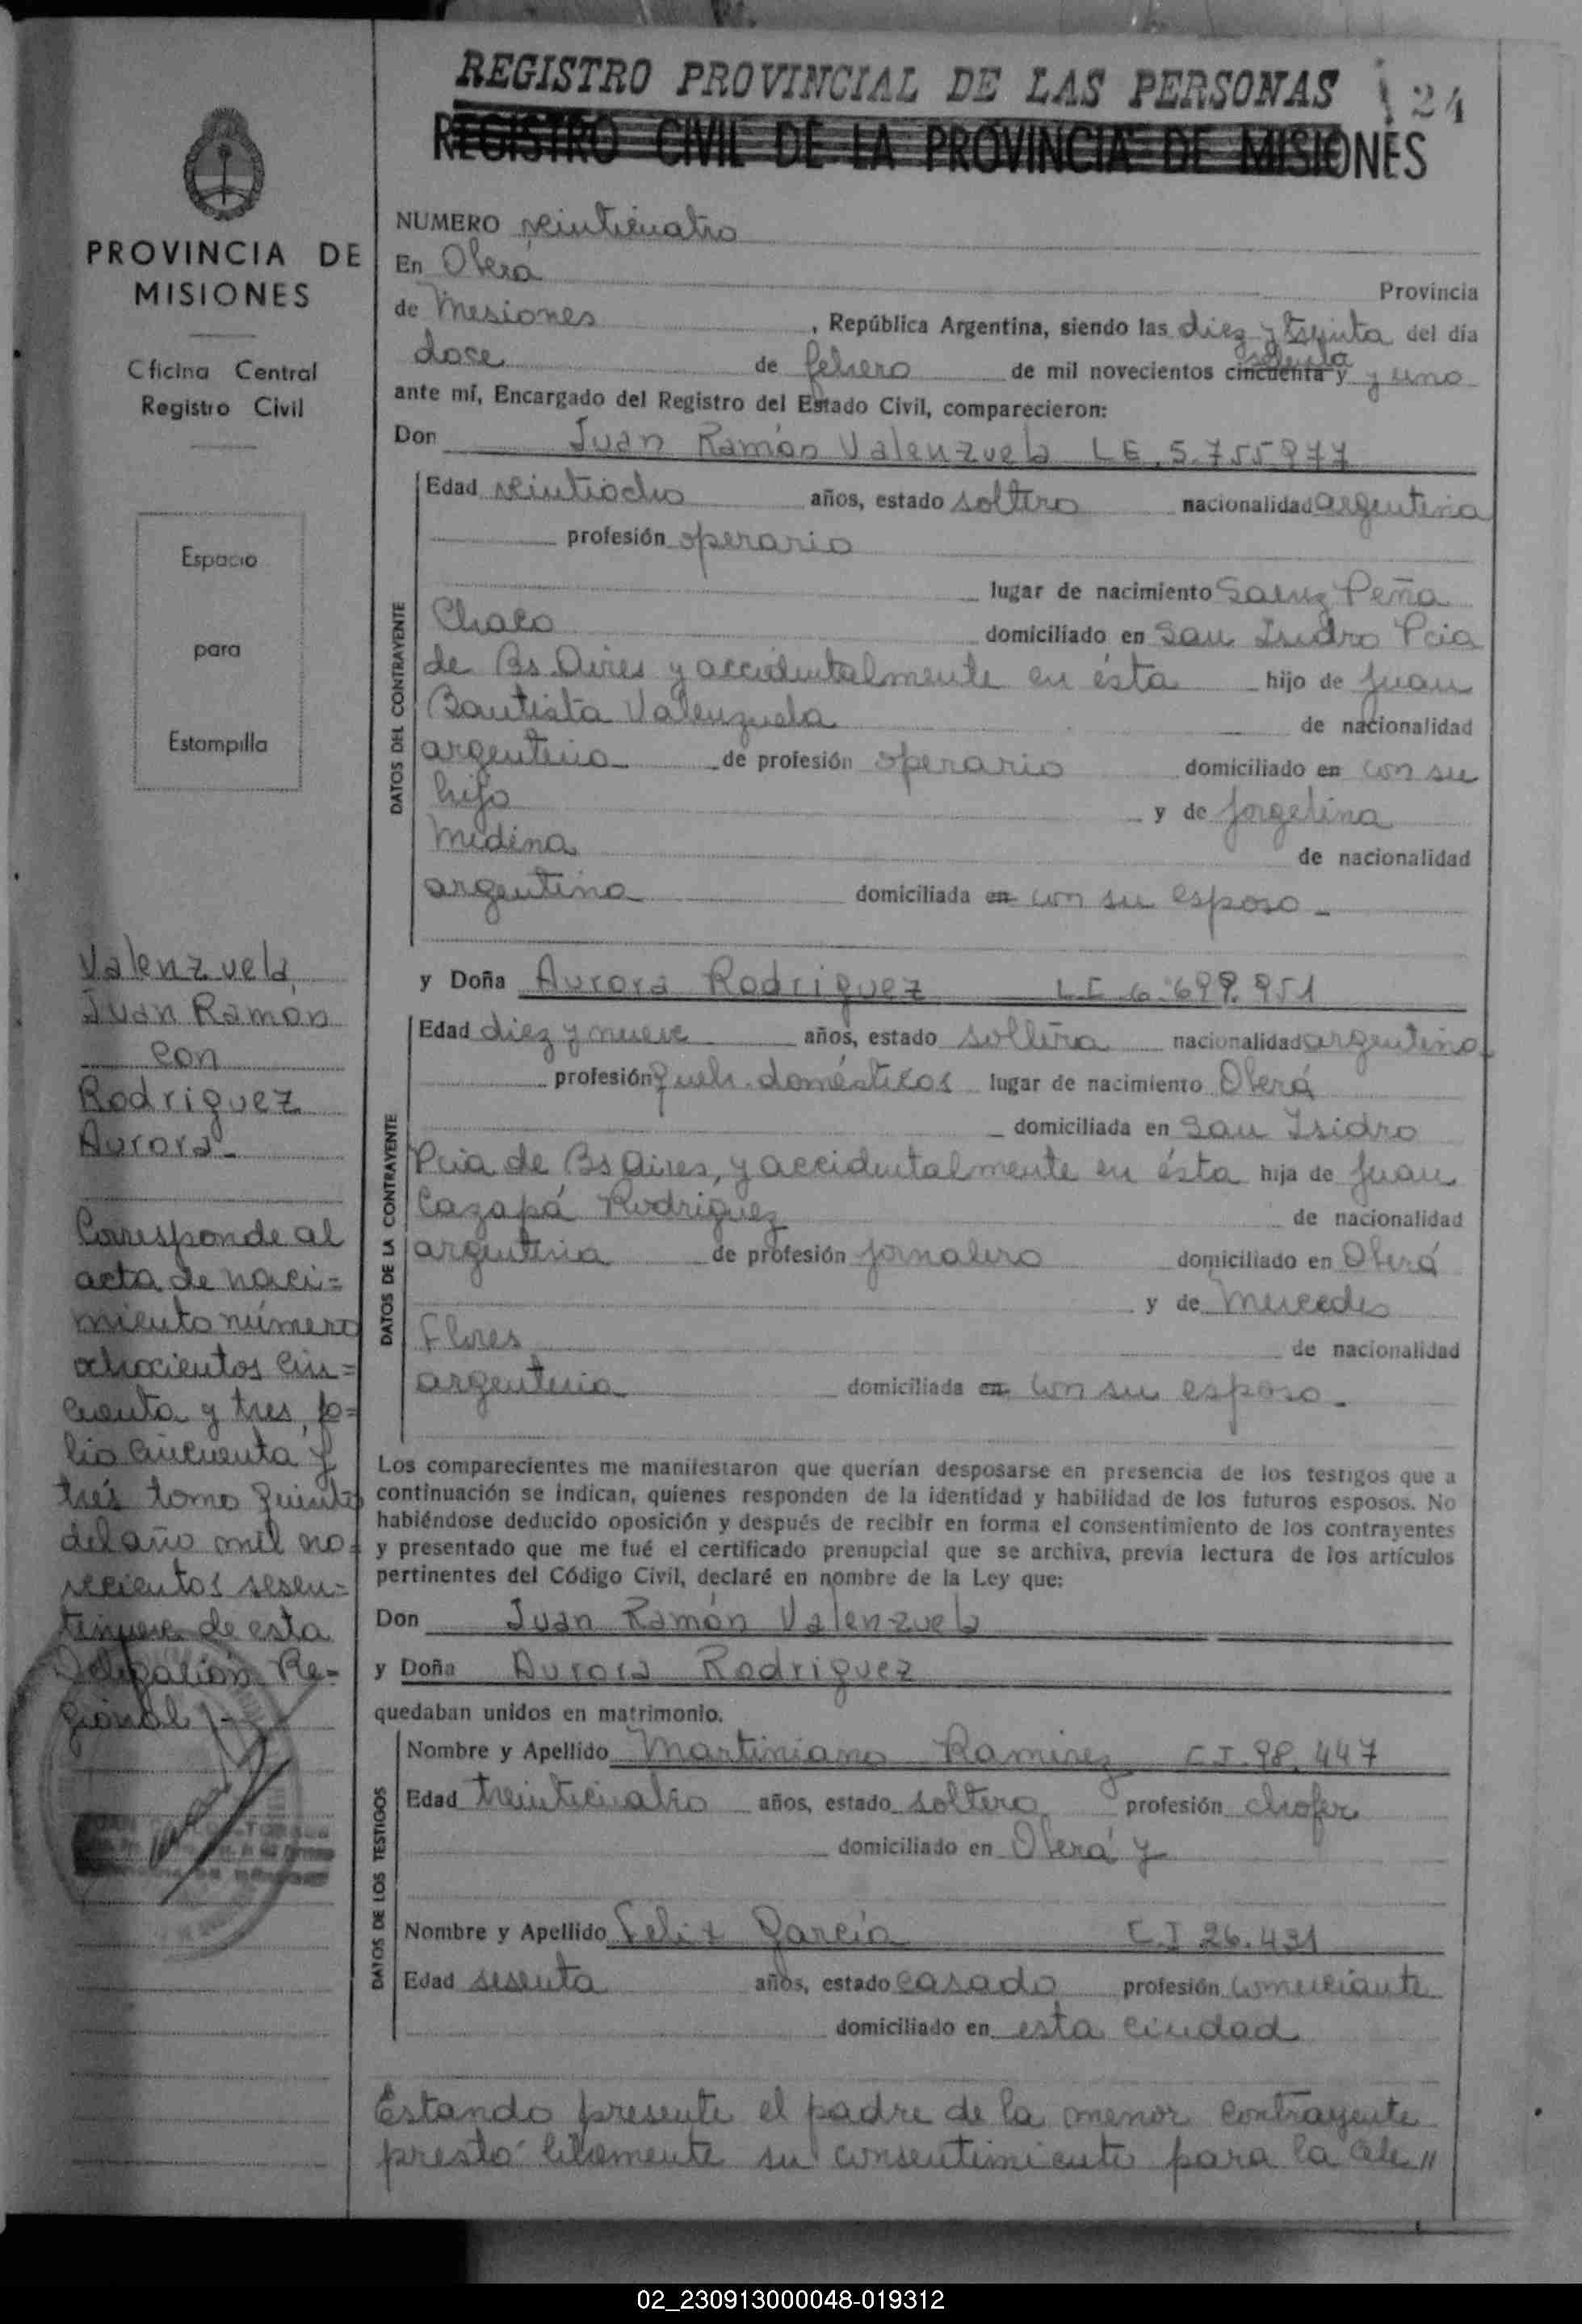 REGISTRO PROVINCIAL DE LAS PERSONAS
124
REGISTRO CIVIL DE LA PROVINCIA DE MISIONES
PROVINCIA DE
MISIONES
Oficina Central
Registro Civil
Espacio
para
Estampilla
Valenzuela,
Juan Ramón
con
Rodriguez
Aurora-
Corresponde al
acta de naci=
miento número
ochocientos cin=
cuenta y tres, fo=
lio cincuenta y
tres tomo quinto
del año mil no=
vecientos sesen=
de esta
Delegación Re=
gional /-
NUMERO veinticuatro
En Oberá
Provincia
de Misiones , República Argentina, siendo las diez y treinta del día
doce de febrero de mil novecientos cincuenta y setenta y uno
ante mí, Encargado del Registro del Estado Civil, comparecieron:
Don Juan Ramón Valenzuela LE. 5.755977
DATOS DEL CONTRAYENTE
Edad veintiocho años, estado soltero nacionalidad argentina
profesión operario
lugar de nacimiento Saenz Peña
Chaco domiciliado en San Isidro Pcia
de Bs. Aires y accidentalmente en ésta hijo de Juan
Bautista Valenzuela de nacionalidad
argentina de profesión operario domiciliado en con su
hijo y de Jorgelina
Medina de nacionalidad
argentina domiciliada en con su esposo-
y Doña Aurora Rodriguez LC 6.699.951
DATOS DE LA CONTRAYENTE
Edad diez y nueve años, estado soltera nacionalidad argentina
profesión queh. domésticos lugar de nacimiento Oberá
domiciliada en San Isidro
Pcia de Bs Aires, y accidentalmente en ésta hija de Juan
Cazapá Rodriguez de nacionalidad
argentina de profesión jornalero domiciliado en Oberá
y de Mercedes
Flores de nacionalidad
argentina domiciliada en con su esposo-
Los comparecientes me manifestaron que querían desposarse en presencia de los testigos que a
continuación se indican, quienes responden de la identidad y habilidad de los futuros esposos. No
habiéndose deducido oposición y después de recibir en forma el consentimiento de los contrayentes
y presentado que me fué el certificado prenupcial que se archiva, previa lectura de los artículos
pertinentes del Código Civil, declaré en nombre de la Ley que:
Don Juan Ramón Valenzuela
y Doña Aurora Rodriguez
quedaban unidos en matrimonio.
DATOS DE LOS TESTIGOS
Nombre y Apellido Martiniano Ramirez C.I. 98.447
Edad treinticuatro años, estado soltero profesión chofer
domiciliado en Oberá y
Nombre y Apellido Felix García C.I 26.431
Edad sesenta años, estado casado profesión comerciante
domiciliado en esta ciudad
Estando presente el padre de la menor contrayente
prestó libremente su consentimiento para la cele//
02_230913000048-019312